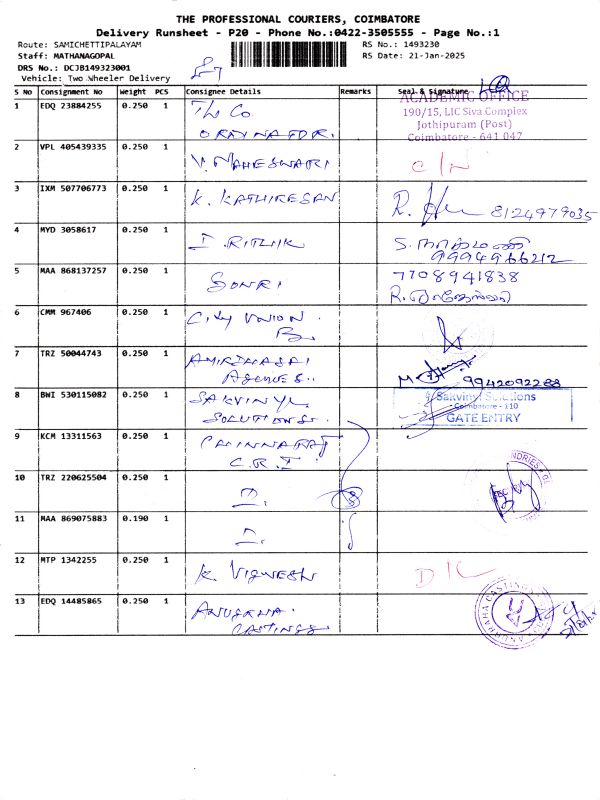 THE PROFESSIONAL COURIERS, COIMBATORE
Delivery Runsheet - P20 - Phone No.:0422-3505555 - Page No.:1
Route: SAMICHETTIPALAYAM RS No.: 1493230
Staff: MATHANAGOPAL RS Date: 21-Jan-2025
DRS No.: DCJB149323001
Vehicle: Two Wheeler Delivery
S NO Consignment No Weight PCS Consignee Details Remarks Seal & Signature
1 EDQ 23884255 0.250 1 The Co ACADEMIC OFFICE
190/15, LIC Siva Complex
Jothipuram (Post)
Coimbatore - 641 047
2 VPL 405439335 0.250 1 V. MAHESWARI C/N
3 IXM 507706773 0.250 1 K. KATHIRESAN R. 8124979035
4 MYD 3058617 0.250 1 I. RITHIK S. நாகமணி
9994966212
5 MAA 868137257 0.250 1 SONRI 7708941838
6 CMM 967406 0.250 1 City UNION
B.
7 TRZ 50044743 0.250 1 AMIRTHASAI
AGENCIES.. 9942092288
8 BWI 530115082 0.250 1 SAKVINYL Sakvinyl Solutions
SOLUTIONS. Coimbatore - 110
GATE ENTRY
9 KCM 13311563 0.250 1 CHINNARAJ
C.R.I
10 TRZ 220625504 0.250 1 D.
11 MAA 869075883 0.190 1 D.
12 MTP 1342255 0.250 1 K. VIGNESH D/C
13 EDQ 14485865 0.250 1 ANUGRAHA
CASTINGS ANUGRAHA CASTING